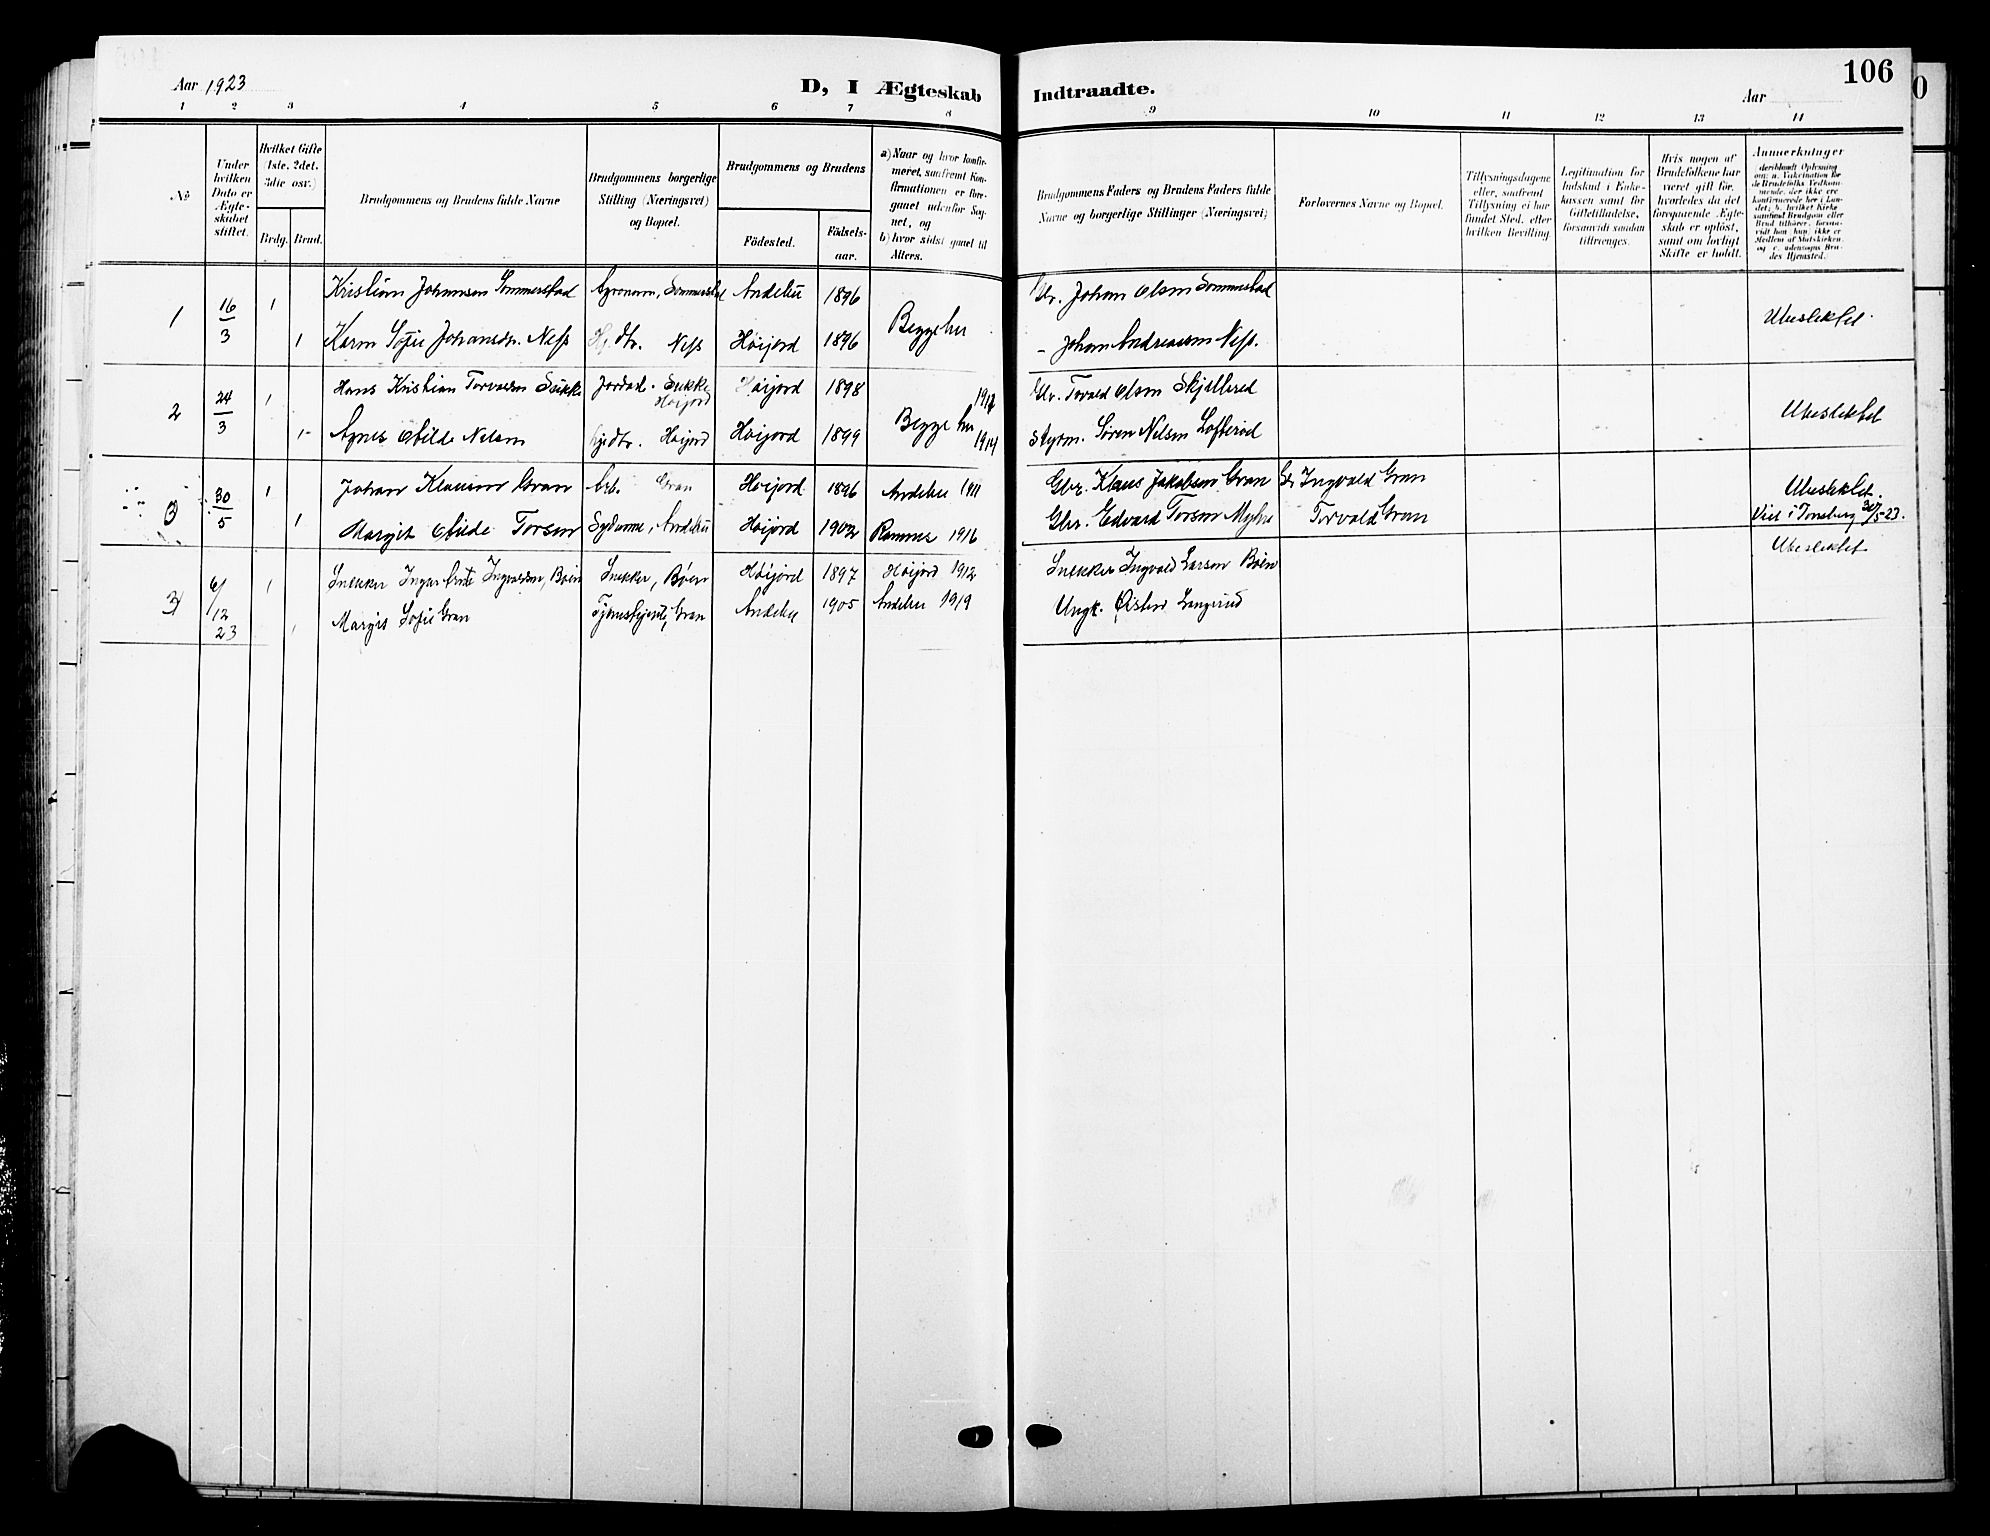 Aar 1923
D, I Ægteskab
Indtraadte.
106
Aar
1 2 3 4 5 6 7 8 9 10 11 12 13 14
No
Under hvilken Dato er Ægte-skabet stiftet.
Hvilket Gifte 1ste. 2det. 3die osv.)
Brdg. Brud.
Brudgommens og Brudens fulde Navne
Brudgommens borgerlige Stilling (Næringsvei) og Bopæl.
Brudgommens og Brudens
Födested.
Födsels-aar.
a) Naar og hvor konfir-meret, saafremt Kon-firmationen er fore-gaaet udenfor Sog-net, og
b) hvor sidst gaaet til Alters.
Brudgommens Faders og Brudens Faders fulde Navne og borgerlige Stillinger (Næringsvei)
Forlovernes Navne og Bopæl.
Tillysningsdagene eller, saafremt Tillysning ei har fundet Sted, efter hvilken Bevilling.
Legitimation for Indskud i Enke-kassen samt for Giftetilladelse, forsaavidt saadan tiltrænges.
Hvis nogen af Brudefolkene har været gift för, hvorledes da det foregaaende Ægte-skab er oplöst, samt om lovligt Skifte er holdt.
Anmærkninger
1 16/3 1 Kristian Johansen Sommerstad Agronom, Sommerstad Andebu 1896
Gbr. Johan Olsen Sommerstad
1 Karen Sofie Johansdr. Ness Hj. dtr. Ness Høijord 1896 Begge her
- Johan Andreassen Ness.
Ubeslektet.
2 24/3 1 Hans Kristian Torvaldsen Sukke Jordad. Sukke Høijord Høijord 1898 1912
Gbr. Torvald Olsen Skjellerød
1 Agnes Otilde Nelsen Hjedtr. Høijord Høijord 1899 Begge her 1914
Styrm. Søren Nelsen Lofterød
Ubeslektet
3 30/5 1 Johan Klausen Gran Arb. Gran Høijord 1896 Andebu 1911
Gbr. Klaus Jakobsen Gran Gbr Ingvald Gran
Ubeslektet.
1 Margit Otilde Torsen Sydame, Andebu Høijord 1902 Ramnes 1916
Gbr. Edvard Torsen Myhre Torvald Gran
Viet i Tønsberg 30/5-23.
3 6/12 23 1 Snekker Ingar Ingvaldsen, Bøen Snekker, Bøen Høijord 1897 Høijord 1912
Snekker Ingvald Larsen Bøen
Ubeslektet
1 Margit Sofie Gran Tjenestejente, Gran Andebu 1905 Andebu 1919
Ungk. Øistein Langerud